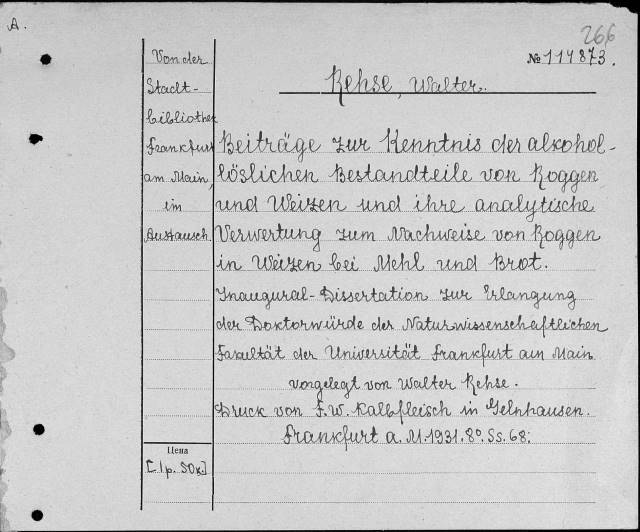 A.
266
№ 114873.
Rehse, Walter.
Von der
Stadt-
bibliothek
Frankfurt
am Main,
im
Austausch
Beiträge zur Kenntnis der alkohol-
löslichen Bestandteile von Roggen
und Weizen und ihre analytische
Verwertung zum Nachweise von Roggen
in Weizen bei Mehl und Brot.
Inaugural-Dissertation zur Erlangung
der Doktorwürde der Naturwissenschaftlichen
Fakultät der Universität Frankfurt am Main
vorgelegt von Walter Rehse.
Druck von F. W. Kalbfleisch in Gelnhausen.
Frankfurt a. M. 1931. 8º. Ss. 68.
Цена
[1 р. 50к.]